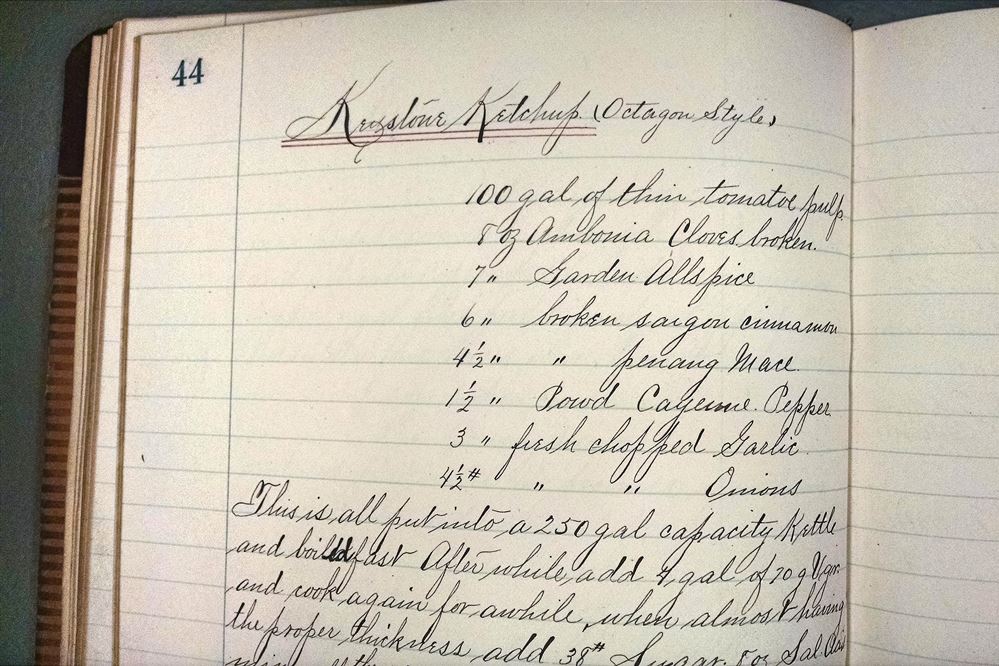 44
Keystone Ketchup (Octagon Style)
100 gal of thin tomatoe pulp.
8 oz Ambonia Cloves broken.
7 " Garden Allspice
6 " broken saigon cinnamon
4½ " " penang Mace.
1½ " Powd Cayenne Pepper
3 " fresh chopped Garlic.
4½# " " Onions
This is all put into a 250 gal capacity Kettle
and boiled fast After while, add 4 gal of 70 g Vgr.
and cook again for awhile, when almost having
the proper thickness add 38# Sugar. 8 oz Sal.